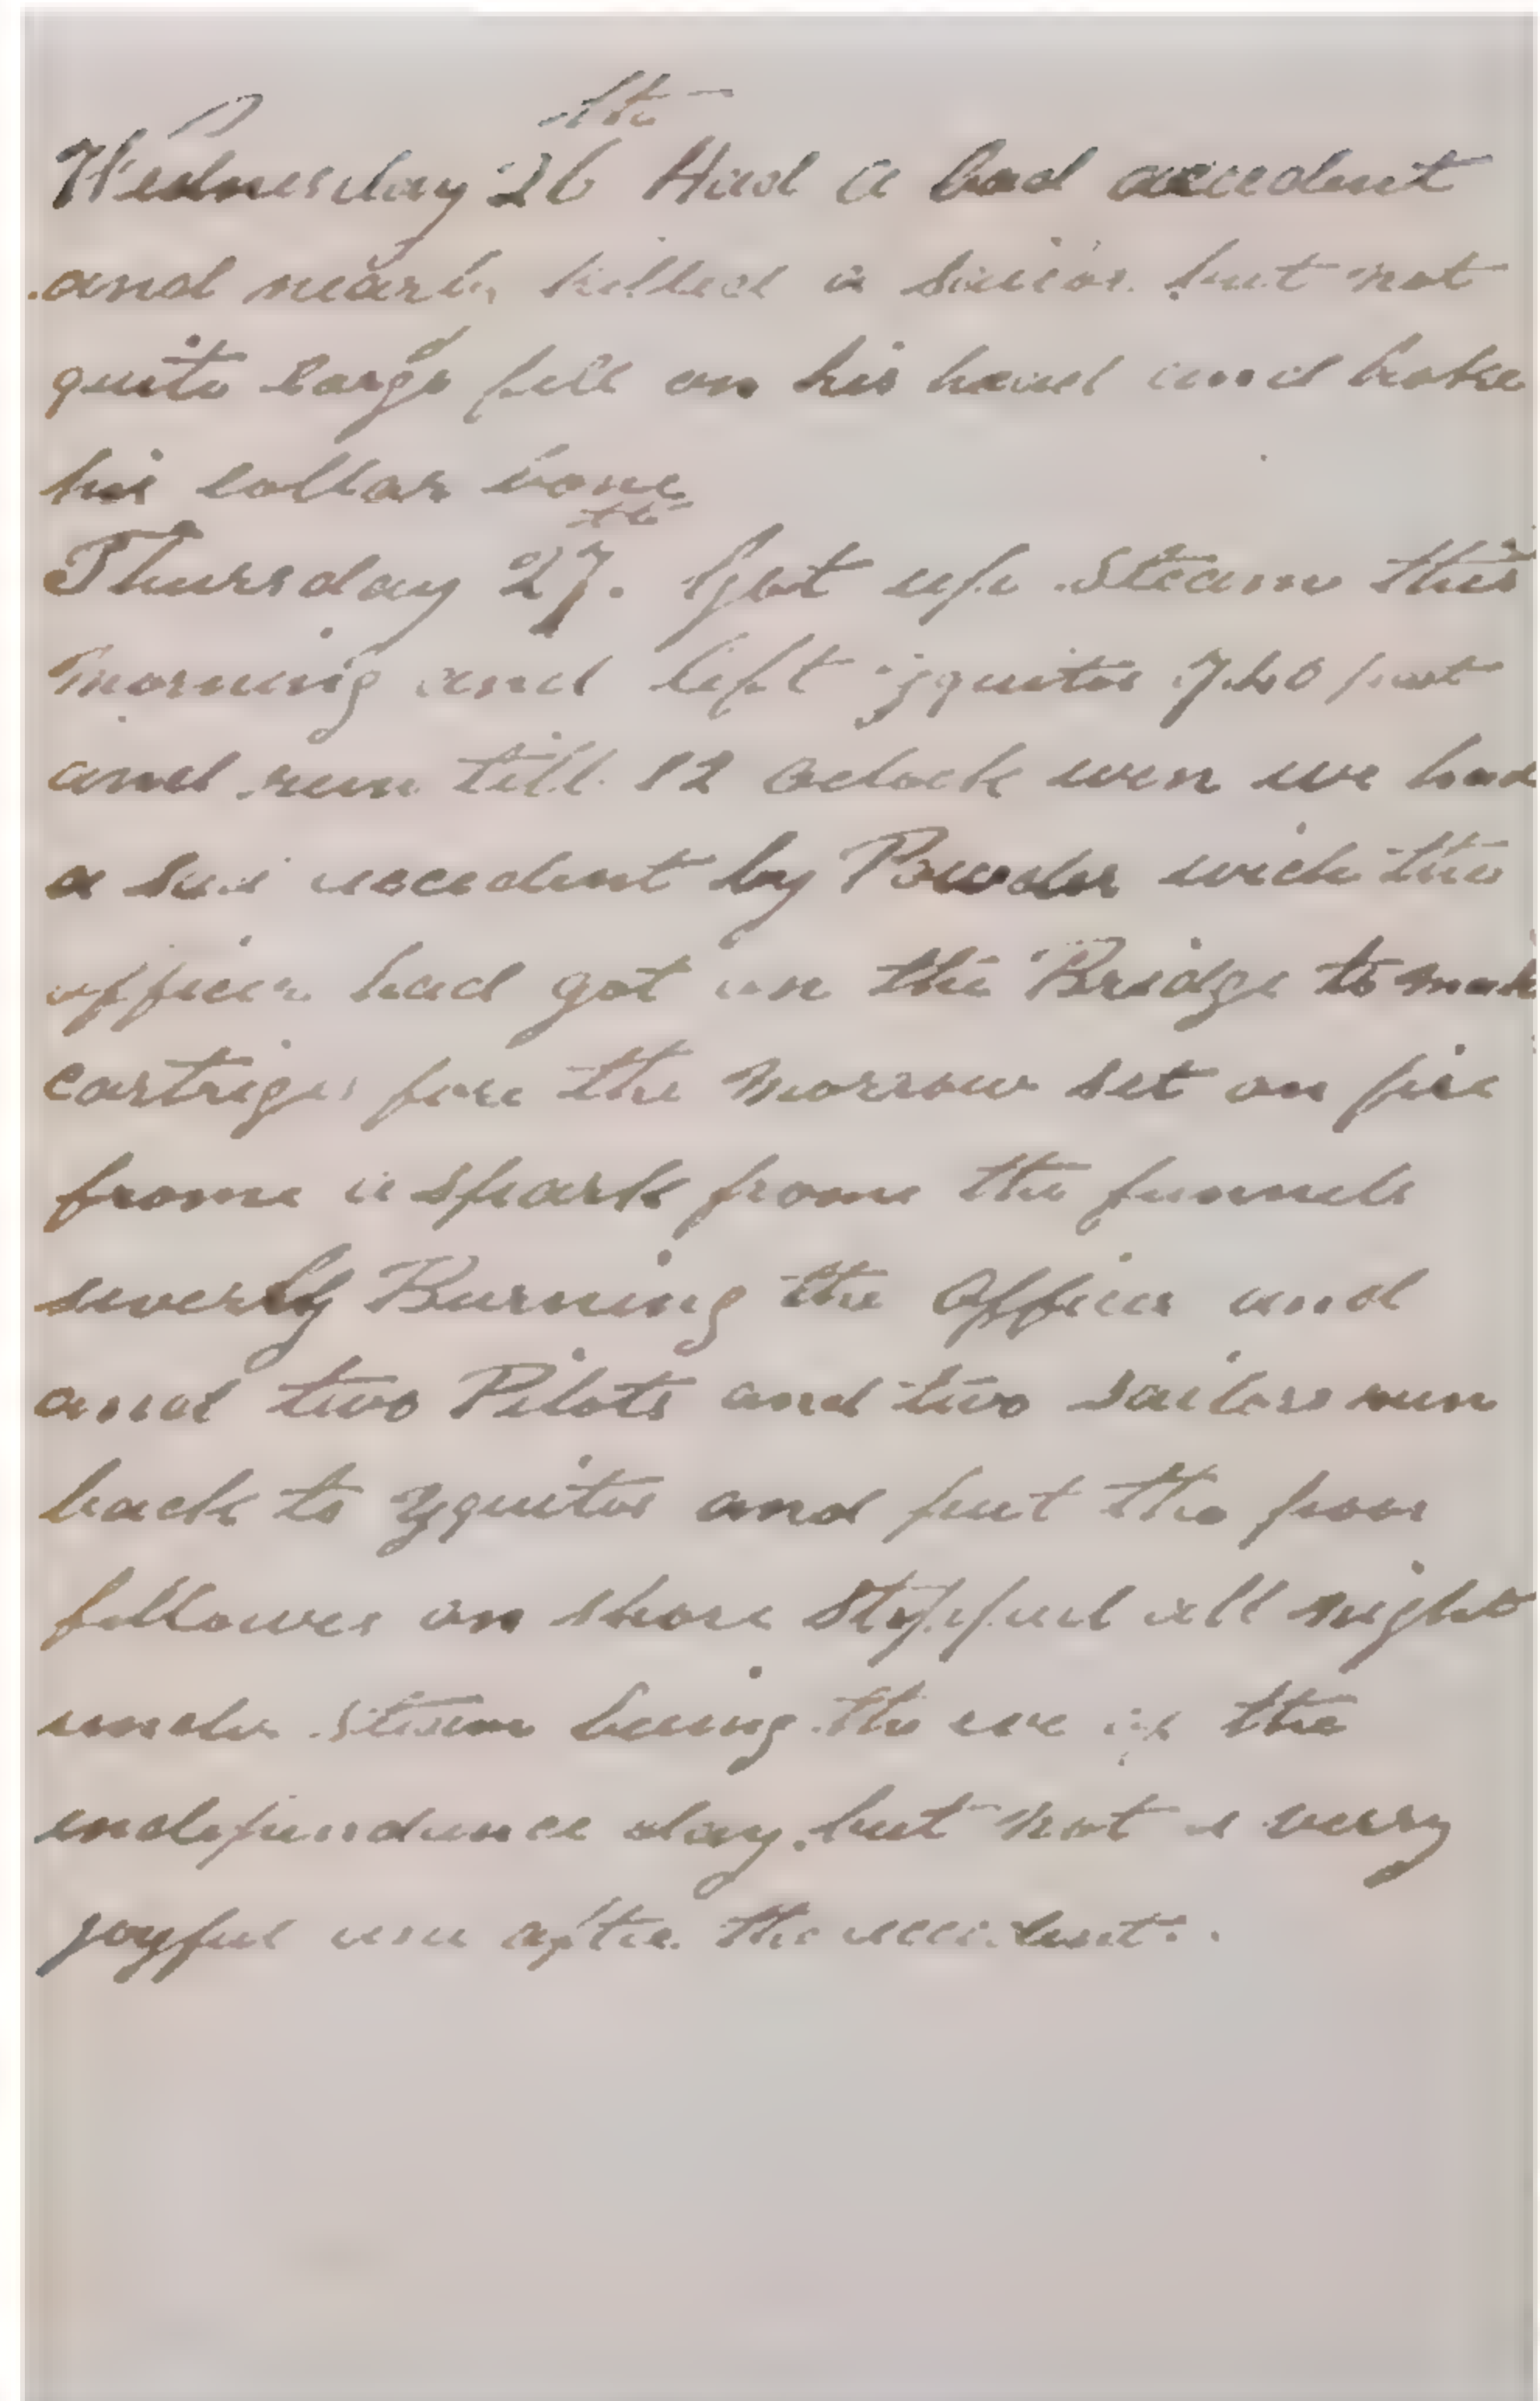 Wednesday 26th Had a bad accedent
and nearly killed a sailor but not
quite large fell on his head and broke
his collar bone
Thursday 27th. Got up steam this
morning and left yquitos 7.40 past
and run till 12 oclock wen we had
a accedent by Powder wich the
officer had got on the Bridge to mak
cartriges fore the morrow set on fire
frome a spark frome the funnels
severly Burning the Officer and
and two Pilots and two sailors run
back to yquitos and put the poor
fellowes on shore stopped all night
under steam being the eve of the
independance day but not a verry
joyful one after the accedent.